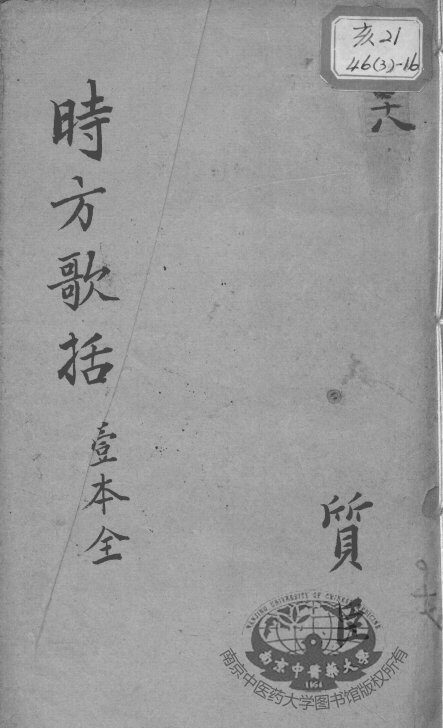 亥21
46(3)-16
六
時方歌括
壹本全
質臣
NANJING UNIVERSITY OF CHINESE MEDICINE
南京中醫藥大學
1954
南京中医药大学图书馆版权所有